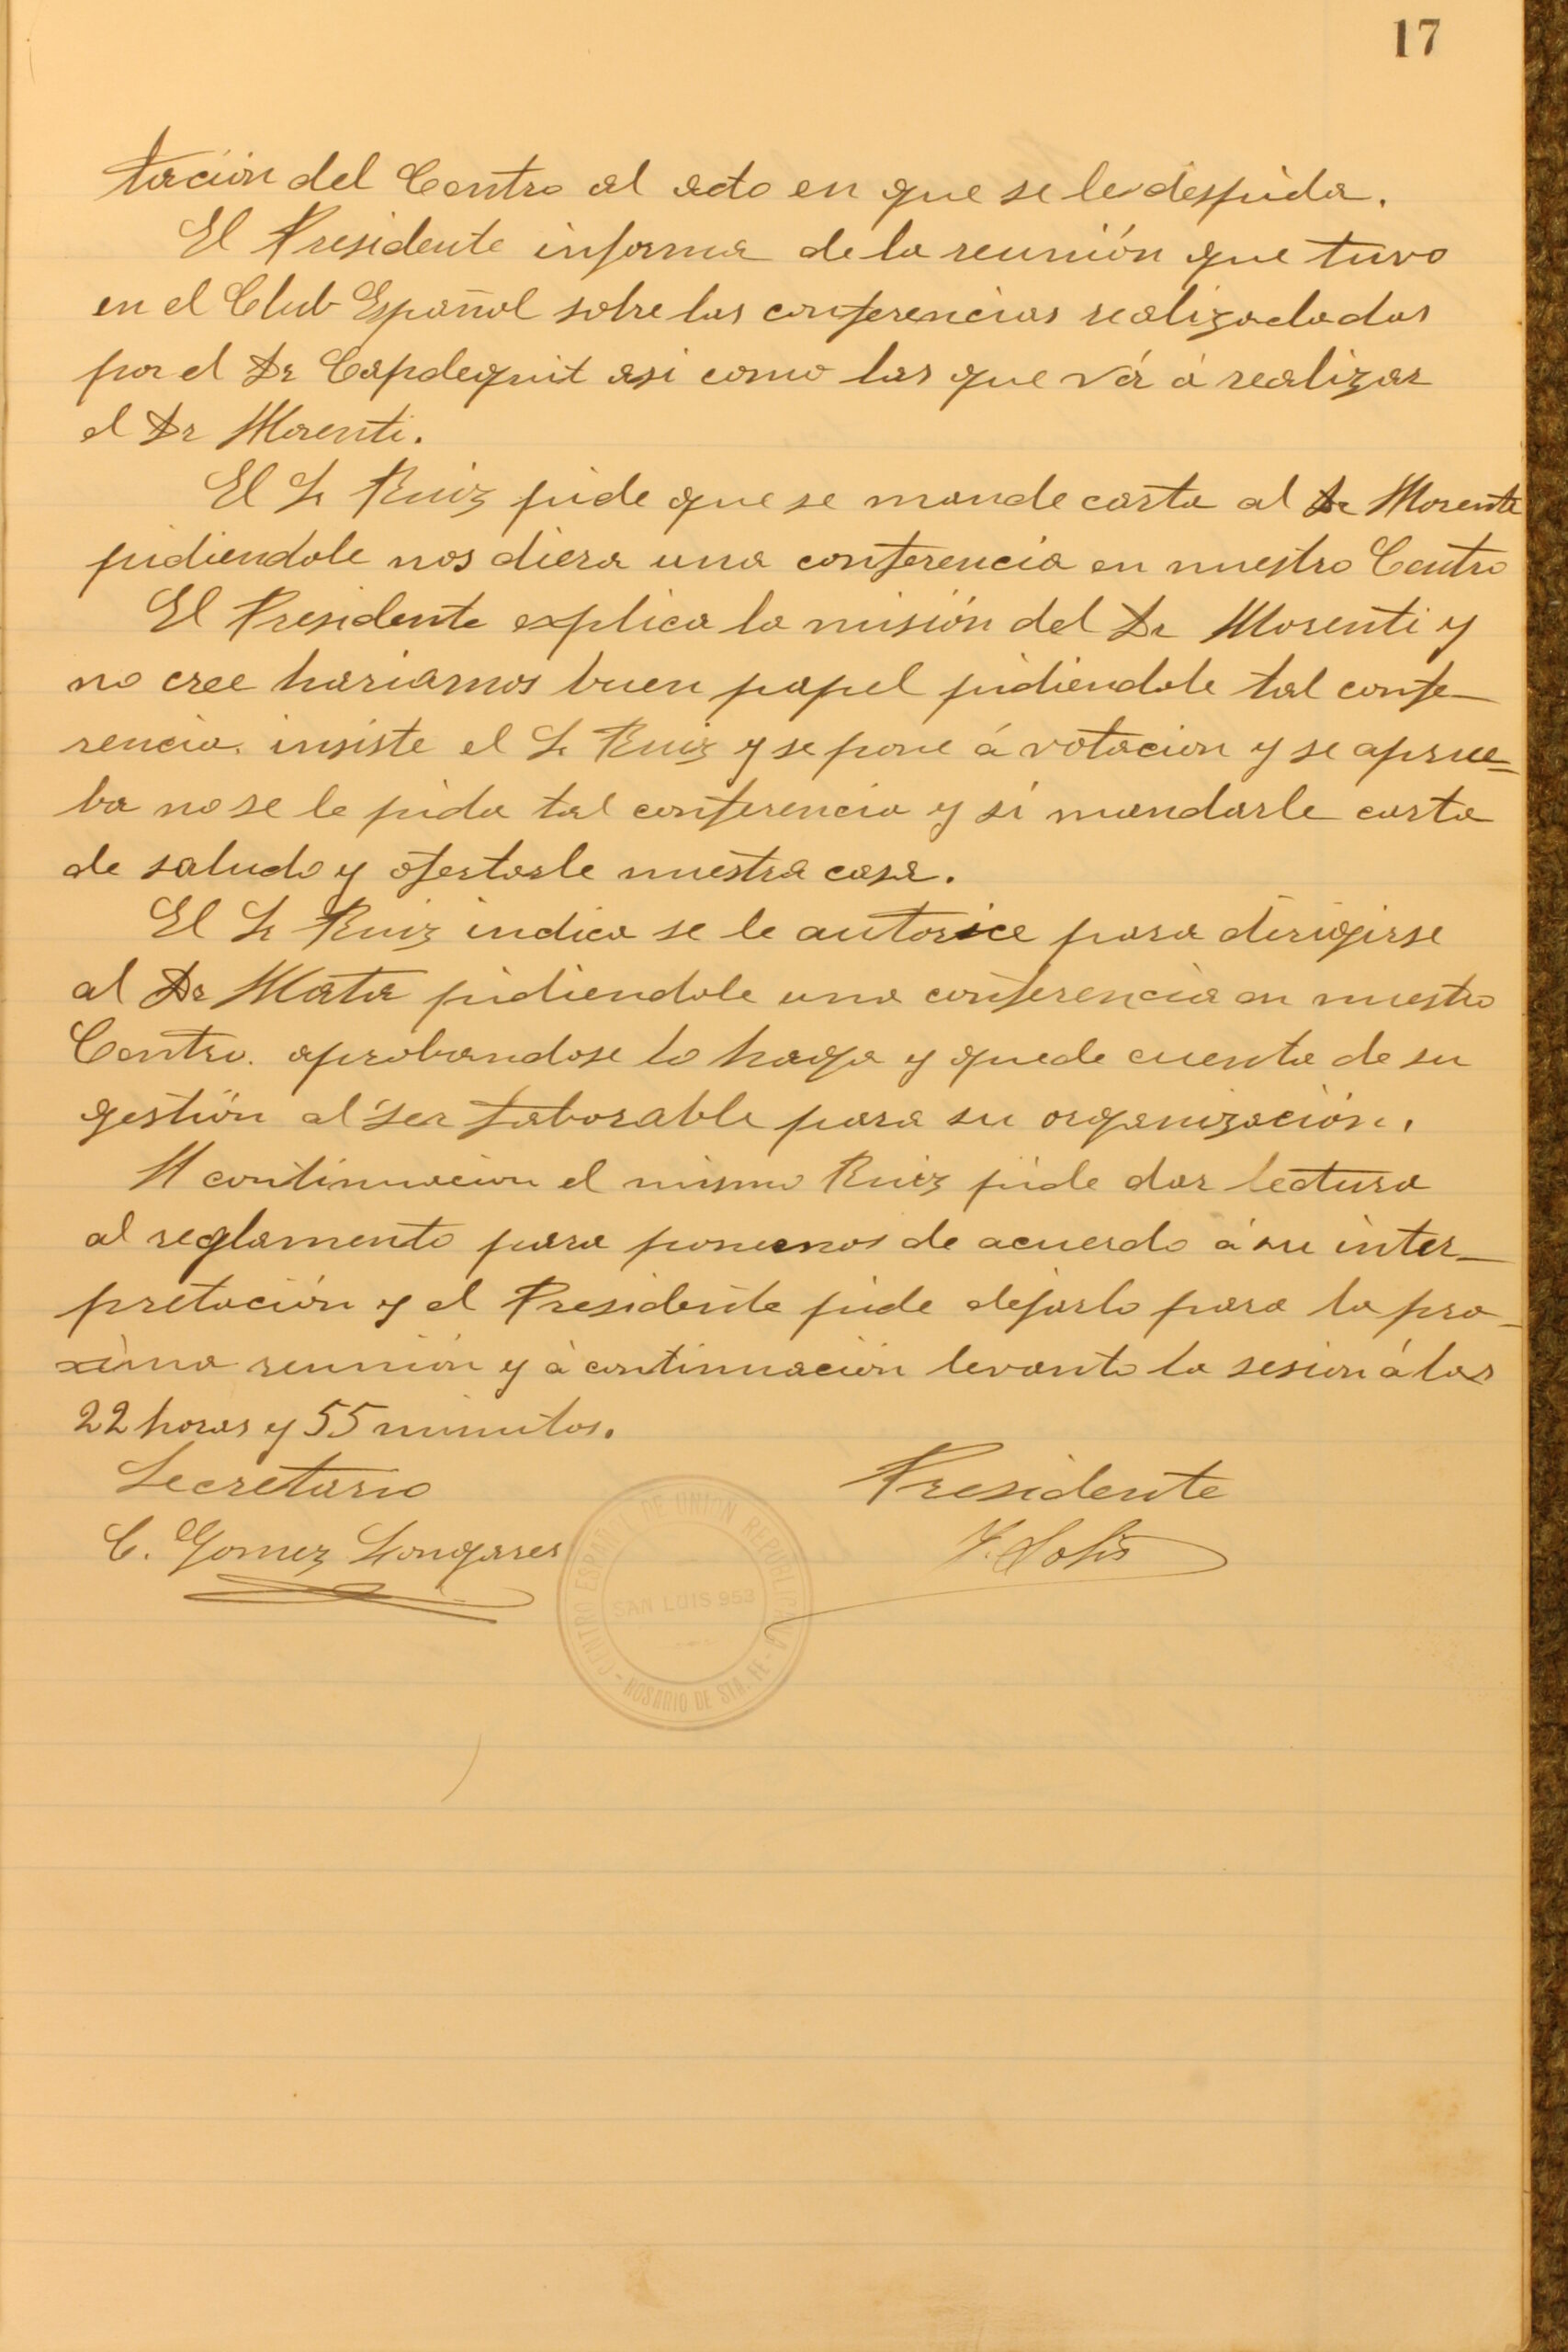 17
tación del Centro al acto en que se le despida.
El Presidente informa de la reunión que tuvo
en el Club Español sobre las conferencias realizadadas
por el Dr Capdequit asi como las que vá á realizar
el Dr Morenti.
El Sr Ruiz pide que se mande carta al Dr Morente
pidiendole nos diera una conferencia en nuestro Centro
El Presidente explica la misión del Dr Morenti y
no cree hariamos buen papel pidiendole tal confe-
rencia. insiste el Sr Ruiz y se pone á votacion y se aprue=
ba no se le pida tal conferencia y si mandarle carta
de saludo y ofertarle nuestra casa.
El Sr Ruiz indica se le autorice para dirigirse
al Dr Mata pidiendole una conferencia en nuestro
Centro. aprobandose lo haga y quede cuenta de su
gestión al ser faborable para su organización.
A continuacion el mismo Ruiz pide dar lectura
al reglamento para ponernos de acuerdo á su inter-
pretación y el Presidente pide dejarlo para la pro-
xima reunión y á continuación levanto la sesion á las
22 horas y 55 minutos.
Secretario Presidente
C. Gomez Longares F. Solis
CENTRO ESPAÑOL DE UNION REPUBLICANA
SAN LUIS 953
- ROSARIO DE STA. FE -